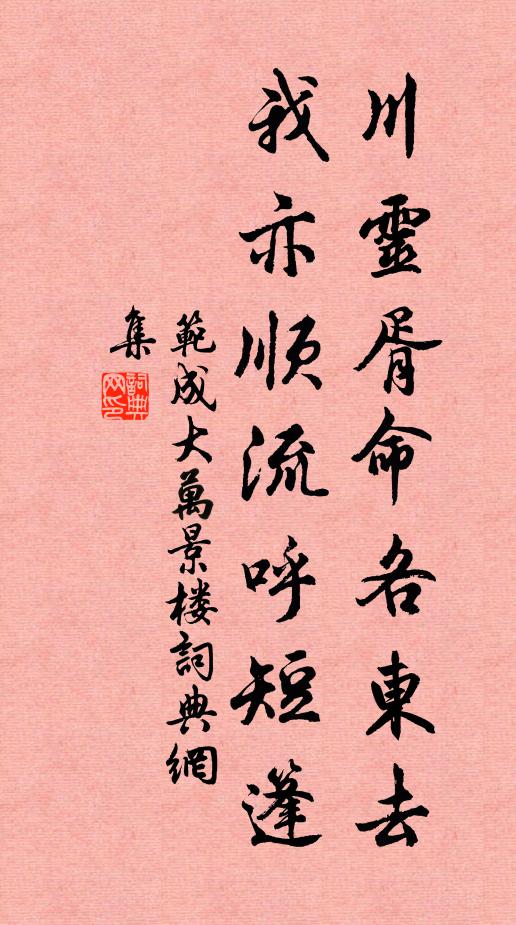 川靈胥命各東去
我亦順流呼短篷
範成大萬景楼詞典網
集
詞典网印